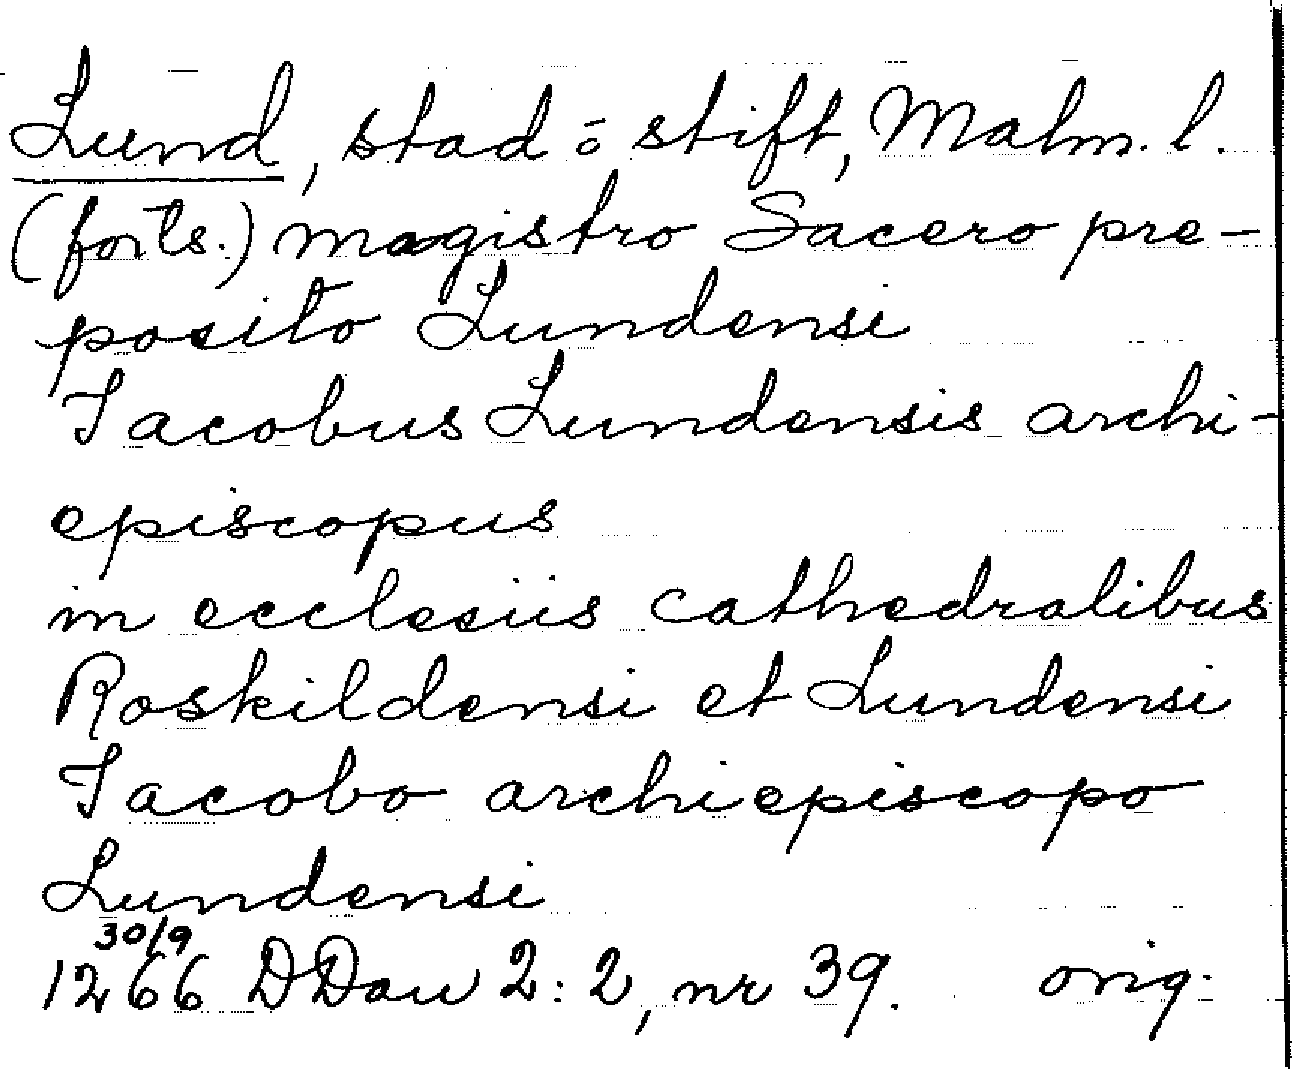 Lund, stad o stift, Malm. l.
(forts.) magistro Sacero pre-
posito Lundensi
Jacobus Lundensis archi-
episcopus
in ecclesiis cathedralibus
Roskildensi et Lundensi
Jacobo archiepiscopo
Lundensi
30/9
1266 DDan 2:2, nr 39. orig.